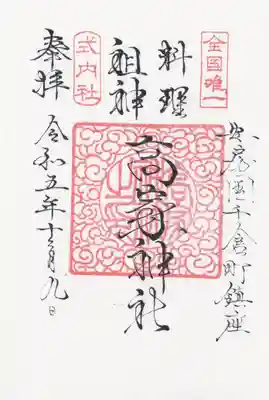 安房国千倉町鎮座
全国唯一
料理
祖神
高家神社
式内社
奉拝
令和五年十月九日